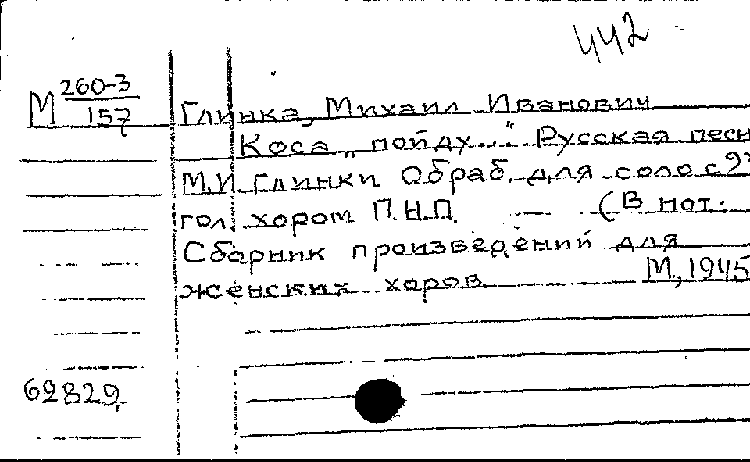 442
М 260-3
157 Глинка, Михаил Иванович
Коса „ пойду..." Русская песн
М.И. Глинки Обраб. для соло с 2х
гол. хором П.Н.П. — (В нот.
Сборник произведений для
женских хоров М, 1945
62829